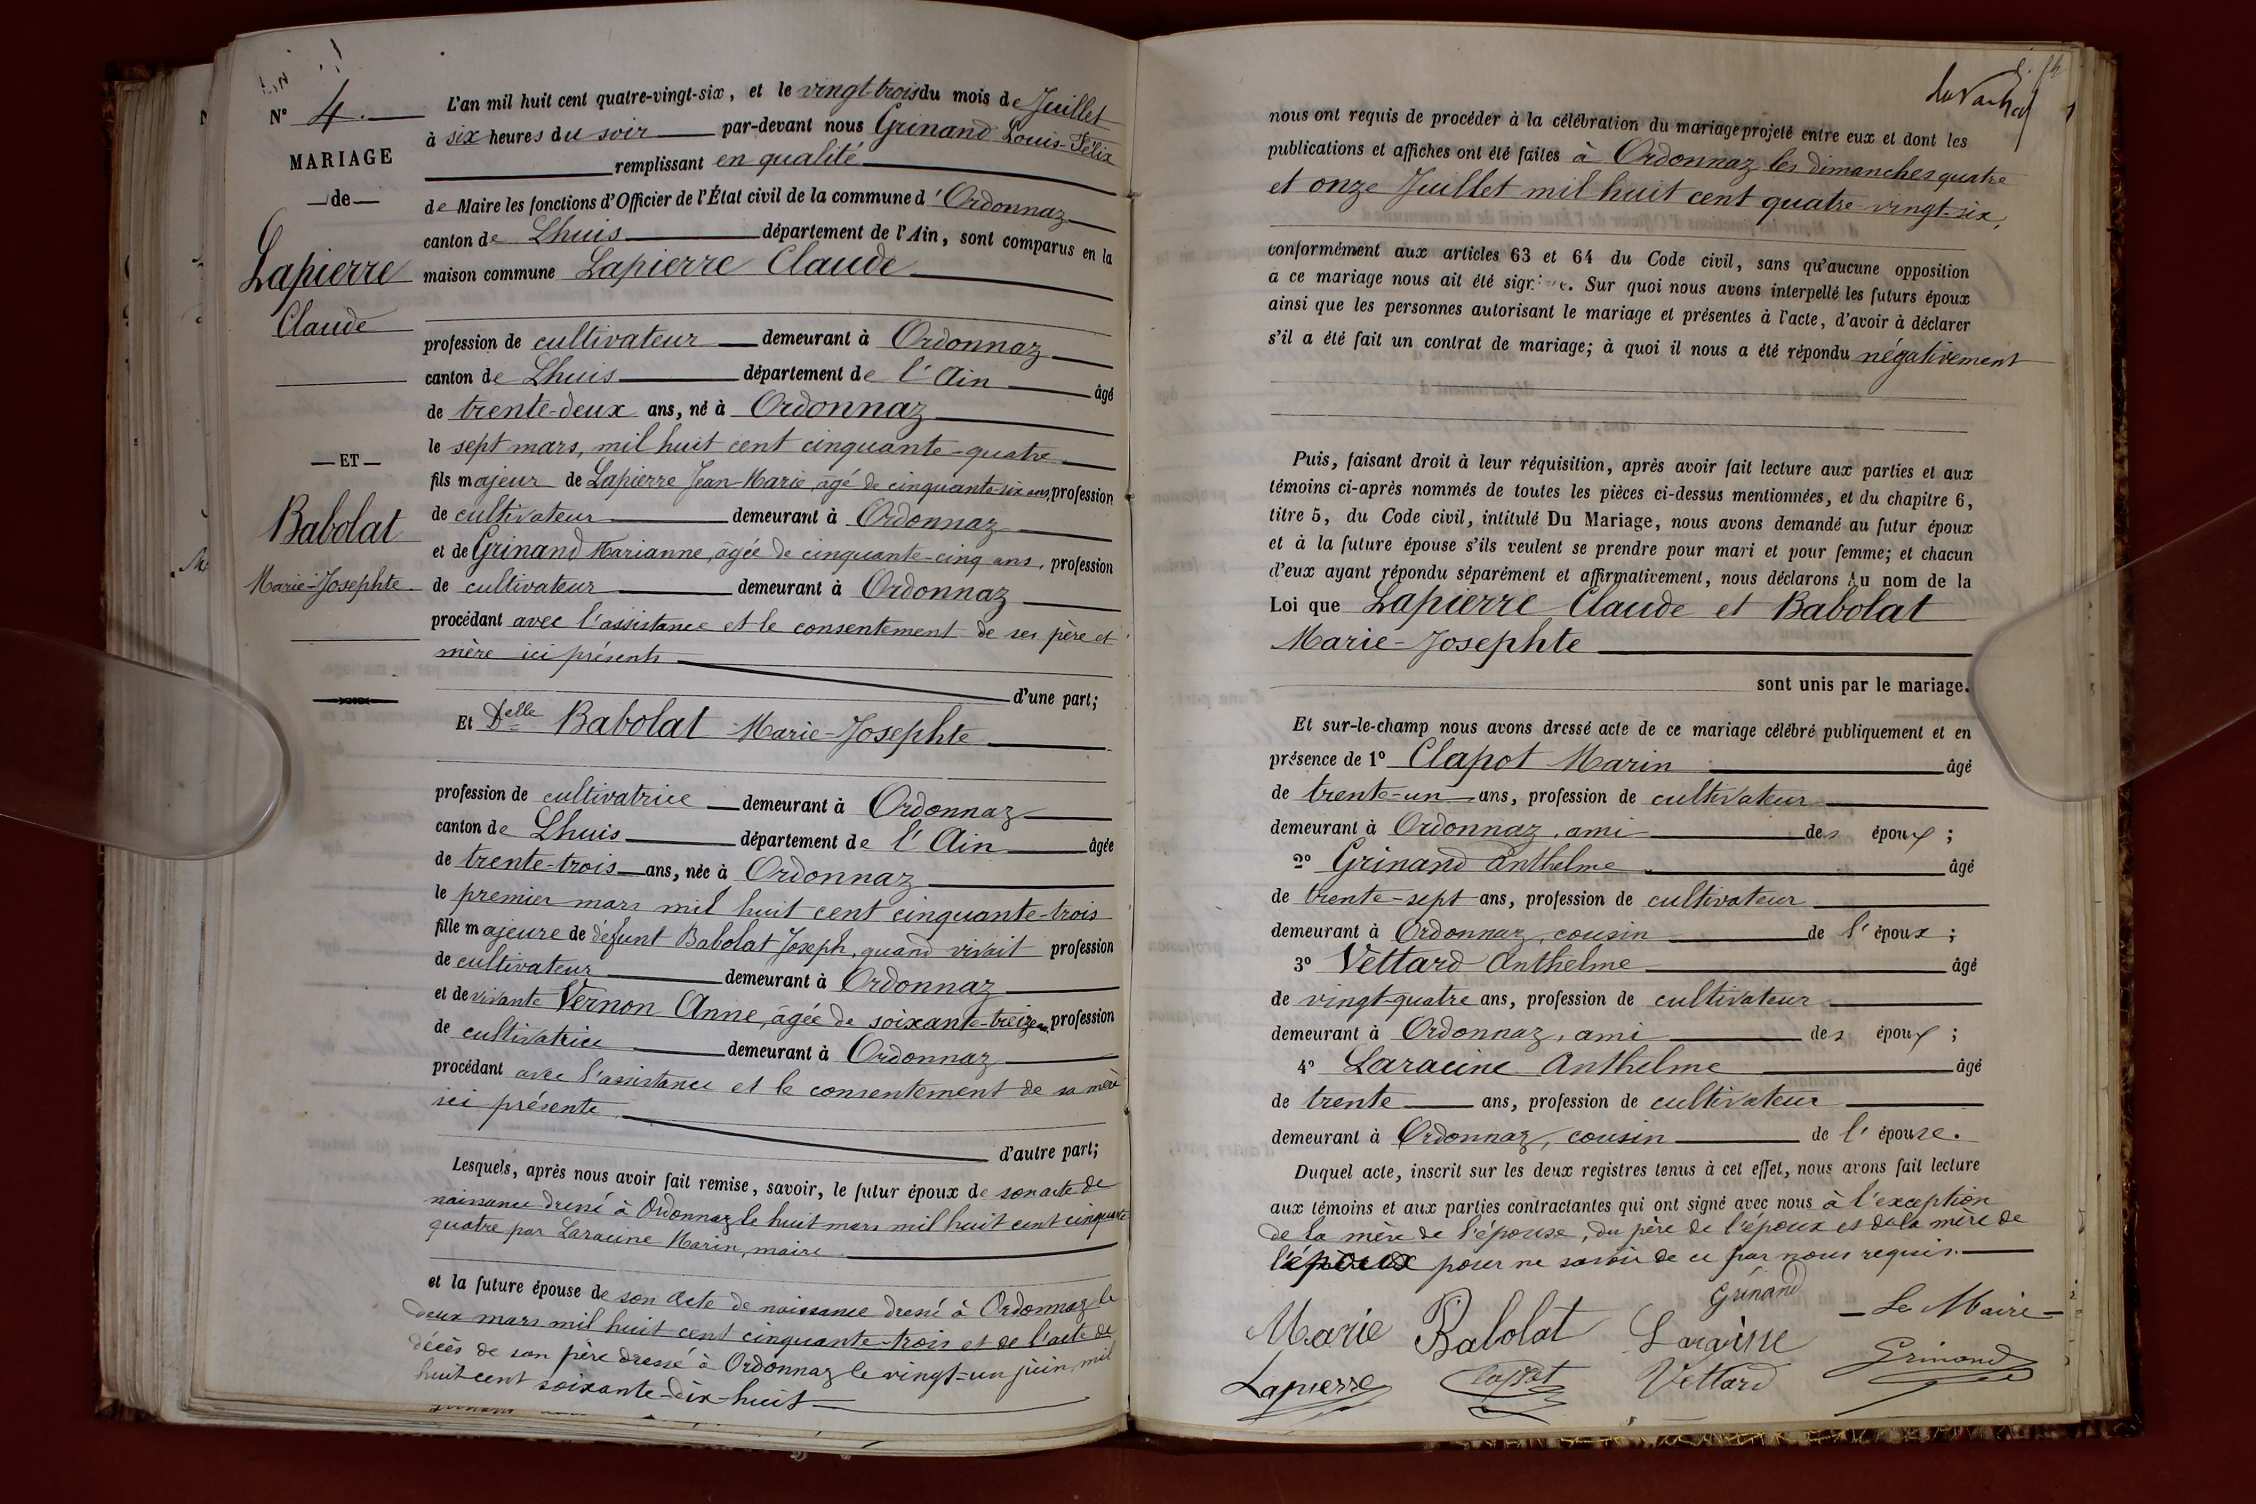 N° 4.
MARIAGE
de
Lapierre
Claude
ET
Babolat
Marie-Josephte
L'an mil huit cent quatre-vingt-six, et le vingt-trois du mois de Juillet
à six heures du soir par-devant nous Grinand Louis-Félix
remplissant en qualité
de Maire les fonctions d'Officier de l'État civil de la commune d'Ordonnaz
canton de Lhuis département de l'Ain, sont comparus en la
maison commune Lapierre Claude
profession de cultivateur demeurant à Ordonnaz
canton de Lhuis département de l'Ain âgé
de trente-deux ans, né à Ordonnaz
le sept mars, mil huit cent cinquante-quatre
fils majeur de Lapierre Jean-Marie, âgé de cinquante-six ans, profession
de cultivateur demeurant à Ordonnaz
et de Grinand Marianne, âgée de cinquante-cinq ans, profession
de cultivateur demeurant à Ordonnaz
procédant avec l'assistance et le consentement de ses père et
mère ici présents
d'une part;
Et Delle Babolat Marie-Josephte
profession de cultivatrice demeurant à Ordonnaz
canton de Lhuis département de l'Ain âgée
de trente-trois ans, née à Ordonnaz
le premier mars mil huit cent cinquante-trois
fille majeure de défunt Babolat Joseph, quand vivait profession
de cultivateur demeurant à Ordonnaz
et de vivante Vernon Anne, âgée de soixante-treize ans, profession
de cultivatrice demeurant à Ordonnaz
procédant avec l'assistance et le consentement de sa mère
ici présente
d'autre part;
Lesquels, après nous avoir fait remise, savoir, le futur époux de son acte de
naissance dressé à Ordonnaz le huit mars mil huit cent cinquante
quatre par Laracine Marin, maire
et la future épouse de son acte de naissance dressé à Ordonnaz le
deux mars mil huit cent cinquante-trois et de l'acte de
décès de son père dressé à Ordonnaz le vingt-un juin mil
huit cent soixante-dix-huit
nous ont requis de procéder à la célébration du mariage projeté entre eux et dont les
publications et affiches ont été faites à Ordonnaz les dimanches quatre
et onze Juillet mil huit cent quatre-vingt-six,
conformément aux articles 63 et 64 du Code civil, sans qu'aucune opposition
à ce mariage nous ait été signifiée. Sur quoi nous avons interpellé les futurs époux
ainsi que les personnes autorisant le mariage et présentes à l'acte, d'avoir à déclarer
s'il a été fait un contrat de mariage; à quoi il nous a été répondu négativement
Puis, faisant droit à leur réquisition, après avoir fait lecture aux parties et aux
témoins ci-après nommés de toutes les pièces ci-dessus mentionnées, et du chapitre 6,
titre 5, du Code civil, intitulé Du Mariage, nous avons demandé au futur époux
et à la future épouse s'ils veulent se prendre pour mari et pour femme; et chacun
d'eux ayant répondu séparément et affirmativement, nous déclarons Au nom de la
Loi que Lapierre Claude et Babolat
Marie-Josephte
sont unis par le mariage.
Et sur-le-champ nous avons dressé acte de ce mariage célébré publiquement et en
présence de 1° Clapot Marin âgé
de trente-un ans, profession de cultivateur
demeurant à Ordonnaz, ami des époux;
2° Grinand Anthelme âgé
de trente-sept ans, profession de cultivateur
demeurant à Ordonnaz, cousin de l'époux;
3° Vettard Anthelme âgé
de vingt-quatre ans, profession de cultivateur
demeurant à Ordonnaz, ami des époux;
4° Laracine Anthelme âgé
de trente ans, profession de cultivateur
demeurant à Ordonnaz, cousin de l'épouse.
Duquel acte, inscrit sur les deux registres tenus à cet effet, nous avons fait lecture
aux témoins et aux parties contractantes qui ont signé avec nous à l'exception
de la mère de l'épouse, du père de l'époux et de la mère de
l'époux pour ne savoir de ce par nous requis.
Grinand
Marie Babolat Laracine Le Maire
Lapierre Clapot Vettard Grinand